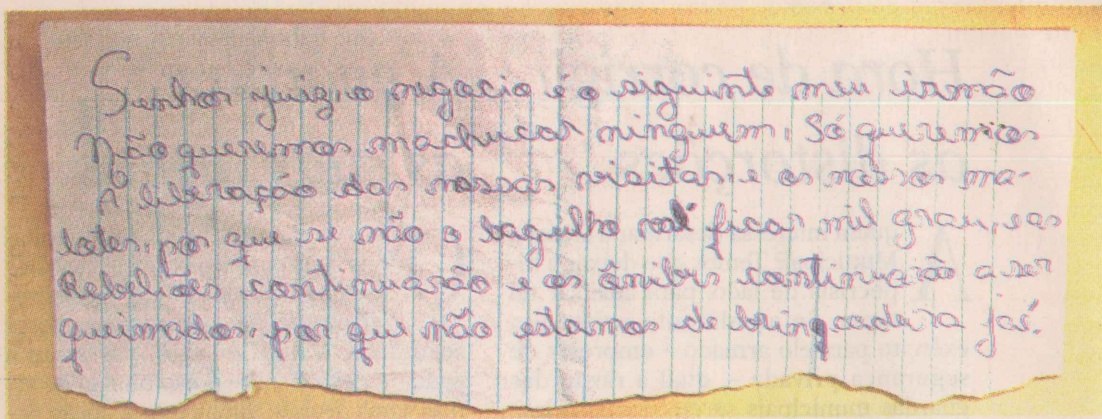 Senhor juiz, o nugocio é o siguinte meu irmão
não queremos machucar ninguem. Só queremos
A liberação das nossas visitas, e os nossos ma-
lotes, por que se não o bagulho vai ficar mil grau, e as
Rebeliões continuarão e os ônibus continuarão a ser
queimados. por que não estamos de bringcadeira já.